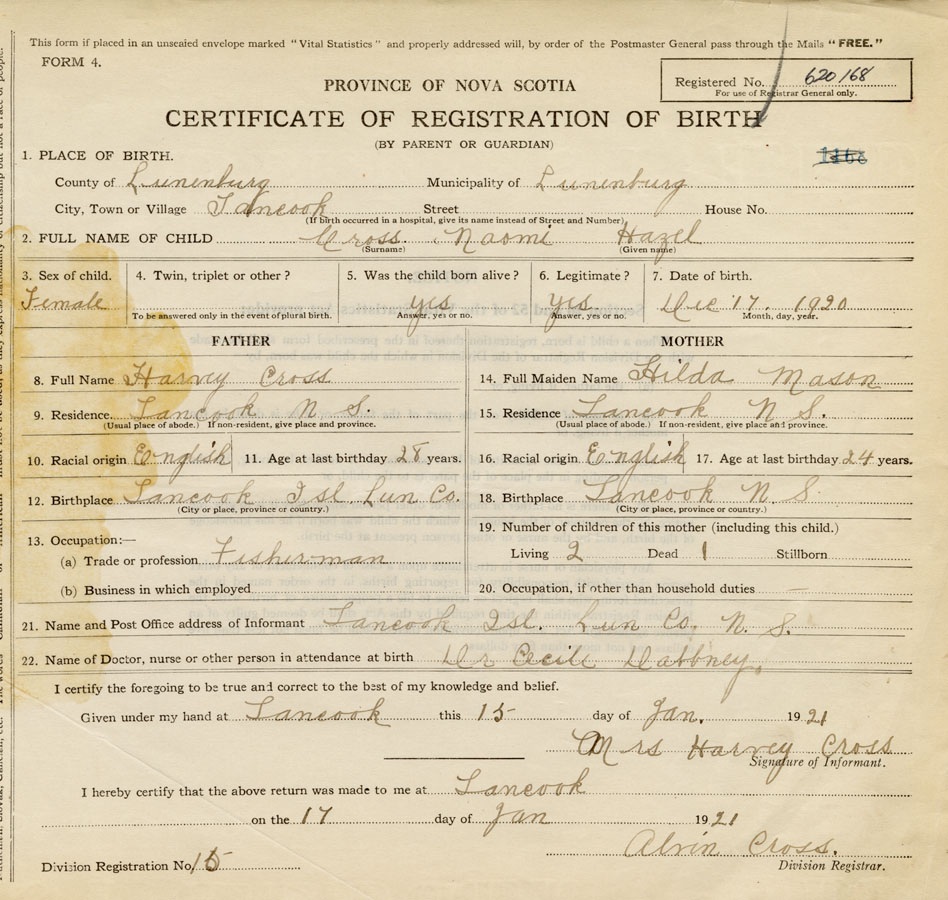 This form if placed in an unsealed envelope marked "Vital Statistics" and properly addressed will, by order of the Postmaster General pass through the Mails "FREE."
FORM 4.
Registered No. 620168
For use of Registrar General only.
PROVINCE OF NOVA SCOTIA
CERTIFICATE OF REGISTRATION OF BIRTH
(BY PARENT OR GUARDIAN)
1. PLACE OF BIRTH.
County of Lunenburg Municipality of Lunenburg
City, Town or Village Tancook Street House No.
(If birth occurred in a hospital, give its name instead of Street and Number)
2. FULL NAME OF CHILD Cross Naomi Hazel
(Surname) (Given name)
3. Sex of child. 4. Twin, triplet or other? 5. Was the child born alive? 6. Legitimate? 7. Date of birth.
Female yes yes Dec 17. 1920
To be answered only in the event of plural birth. Answer, yes or no. Answer, yes or no. Month, day, year.
FATHER
8. Full Name Harvey Cross
9. Residence. Tancook N S.
(Usual place of abode.) If non-resident, give place and province.
10. Racial origin English 11. Age at last birthday 28 years.
12. Birthplace Tancook Isl Lun Co.
(City or place, province or country.)
13. Occupation:—
(a) Trade or profession Fisherman
(b) Business in which employed
MOTHER
14. Full Maiden Name Hilda Mason
15. Residence Tancook N S.
(Usual place of abode.) If non-resident, give place and province.
16. Racial origin English 17. Age at last birthday 24 years.
18. Birthplace Tancook N S
(City or place, province or country.)
19. Number of children of this mother (including this child.)
Living 2 Dead 1 Stillborn
20. Occupation, if other than household duties —
21. Name and Post Office address of Informant Tancook Isl. Lun Co. N. S.
22. Name of Doctor, nurse or other person in attendance at birth Dr Cecile Dabbney.
I certify the foregoing to be true and correct to the best of my knowledge and belief.
Given under my hand at Tancook this 15 day of Jan. 1921
Mrs Harvey Cross
Signature of Informant.
I hereby certify that the above return was made to me at Tancook
on the 17 day of Jan 1921
Alvin Cross.
Division Registration No. 15 Division Registrar.